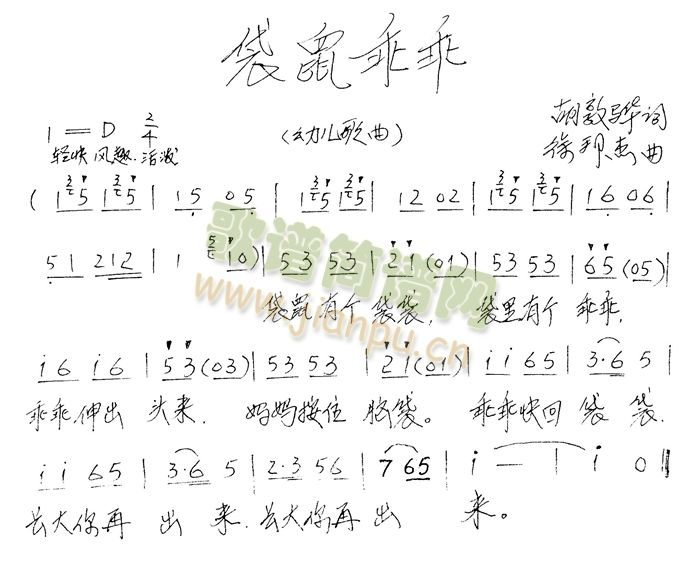 袋鼠乖乖
1=D 2/4 (幼儿歌曲) 胡敦骅词
轻快 风趣.活泼 徐邦杰曲
( 1 3/5 1 3/5 | 15 05 | 1 3/5 1 3/5 | 12 02 | 1 3/5 1 3/5 | 16 06 |
51 212 | 1 5/1 0) | 53 53 | 21 (01) | 53 53 | 65 (05) |
袋鼠有个袋袋, 袋里有个乖乖,
i6 i6 | 53 (03) | 53 53 | 21 (01) | ii 65 | 3·6 5 |
乖乖伸出头来. 妈妈按住胸袋。乖乖快回袋袋.
ii 65 | 3·6 5 | 2·3 56 | 7 65 | i — | i 0 ‖
长大你再出来.长大你再出来。
歌谱简谱网
www.jianpu.cn